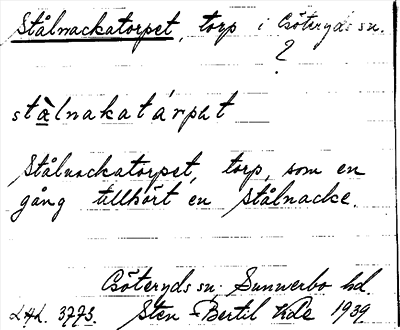 Stålnackatorpet, torp i Göteryds sn.
?
stàlnakatárpet
Stålnackatorpet, torp, som en
gång tillhört en Stålnacke.
Göteryds sn. Sunnerbo hd.
LAL. 3773. Sten-Bertil Vide 1939